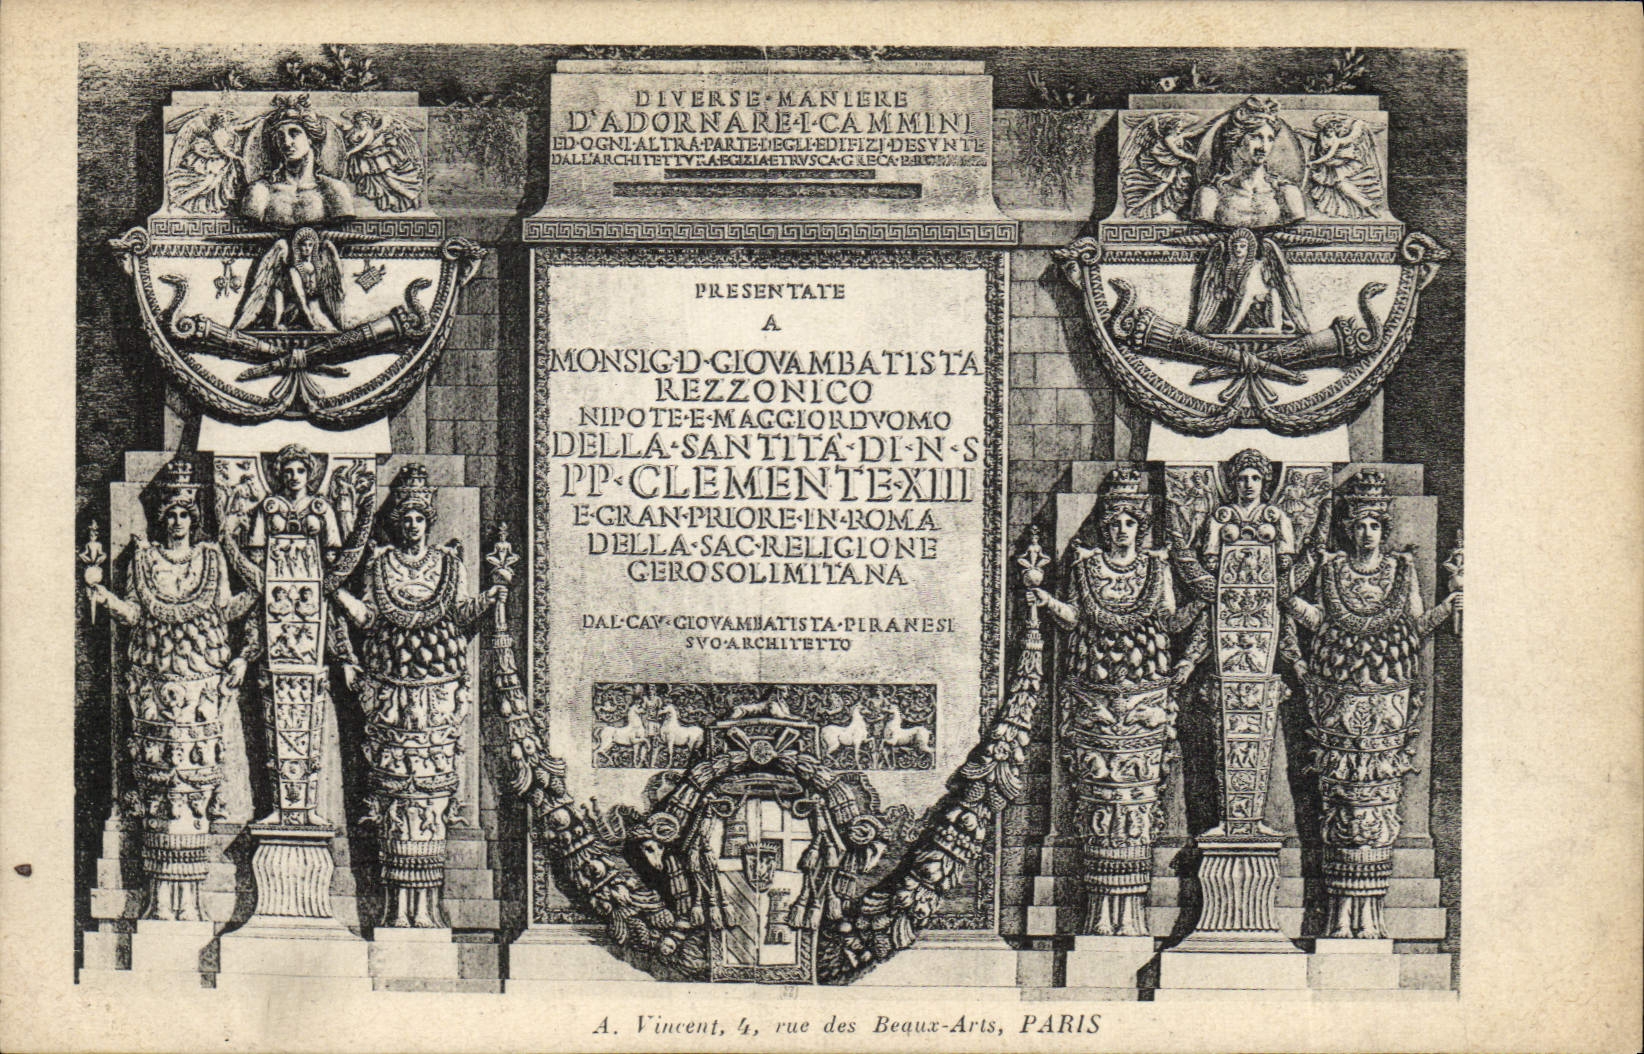 DIVERSE·MANIERE
D'ADORNARE·I·CAMMINI
ED·OGNI·ALTRA·PARTE·DEGLI·EDIFIZJ·DESVNTE
DALL'ARCHITETTVRA·EGIZIA·ETRVSCA·GRECA·E·ROMANA
PRESENTATE
A
MONSIG·D·GIOVAMBATISTA
REZZONICO
NIPOTE·E·MAGGIORDVOMO
DELLA·SANTITÀ·DI·N·S
PP·CLEMENTE·XIII
E·GRAN·PRIORE·IN·ROMA
DELLA·SAC·RELIGIONE
GEROSOLIMITANA
DAL·CAV·GIOVAMBATISTA·PIRANESI
SVO·ARCHITETTO
A. Vincent, 4, rue des Beaux-Arts, PARIS